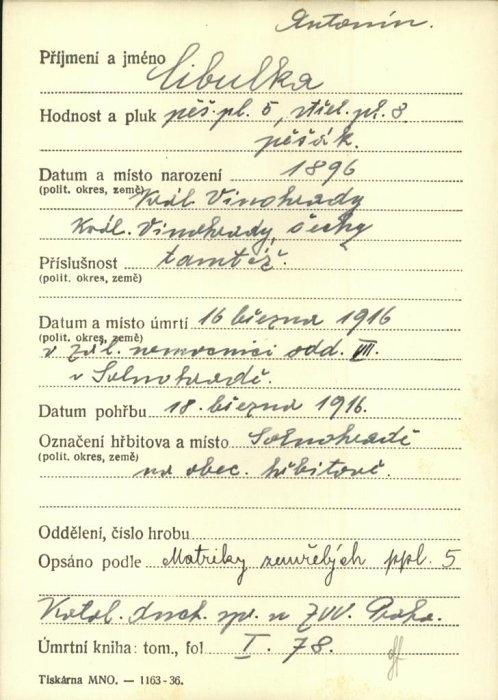 Antonín.
Příjmení a jméno Cibulka
Hodnost a pluk pěš. pl. 5, střel. pl. 8
pěšák.
Datum a místo narození 1896
(polit. okres, země) Král. Vinohrady
Král. Vinohrady, čechy
Příslušnost tamtéž.
(polit. okres, země)
Datum a místo úmrtí 16 března 1916
(polit. okres, země)
v zál. nemocnici odd. VII.
v Solnohradě.
Datum pohřbu 18. března 1916.
Označení hřbitova a místo Solnohradě
(polit. okres, země)
na obec. hřbitově.
Oddělení, číslo hrobu
Opsáno podle Matriky zemřelých ppl. 5
Katol. duch. sp. u ZVV. Praha.
Úmrtní kniha: tom., fol I. 78.
Tiskárna MNO. — 1163-36.